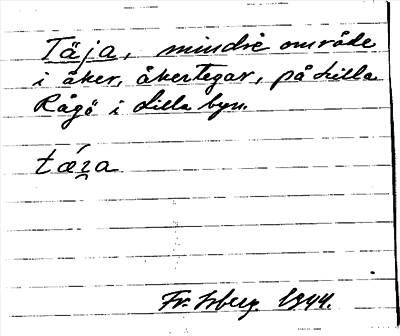 Täja, mindre område
i åker, åkertegar, på Lilla
Rågö i Lilla byn.
tǽʒa
Fr. Isberg. 1944.